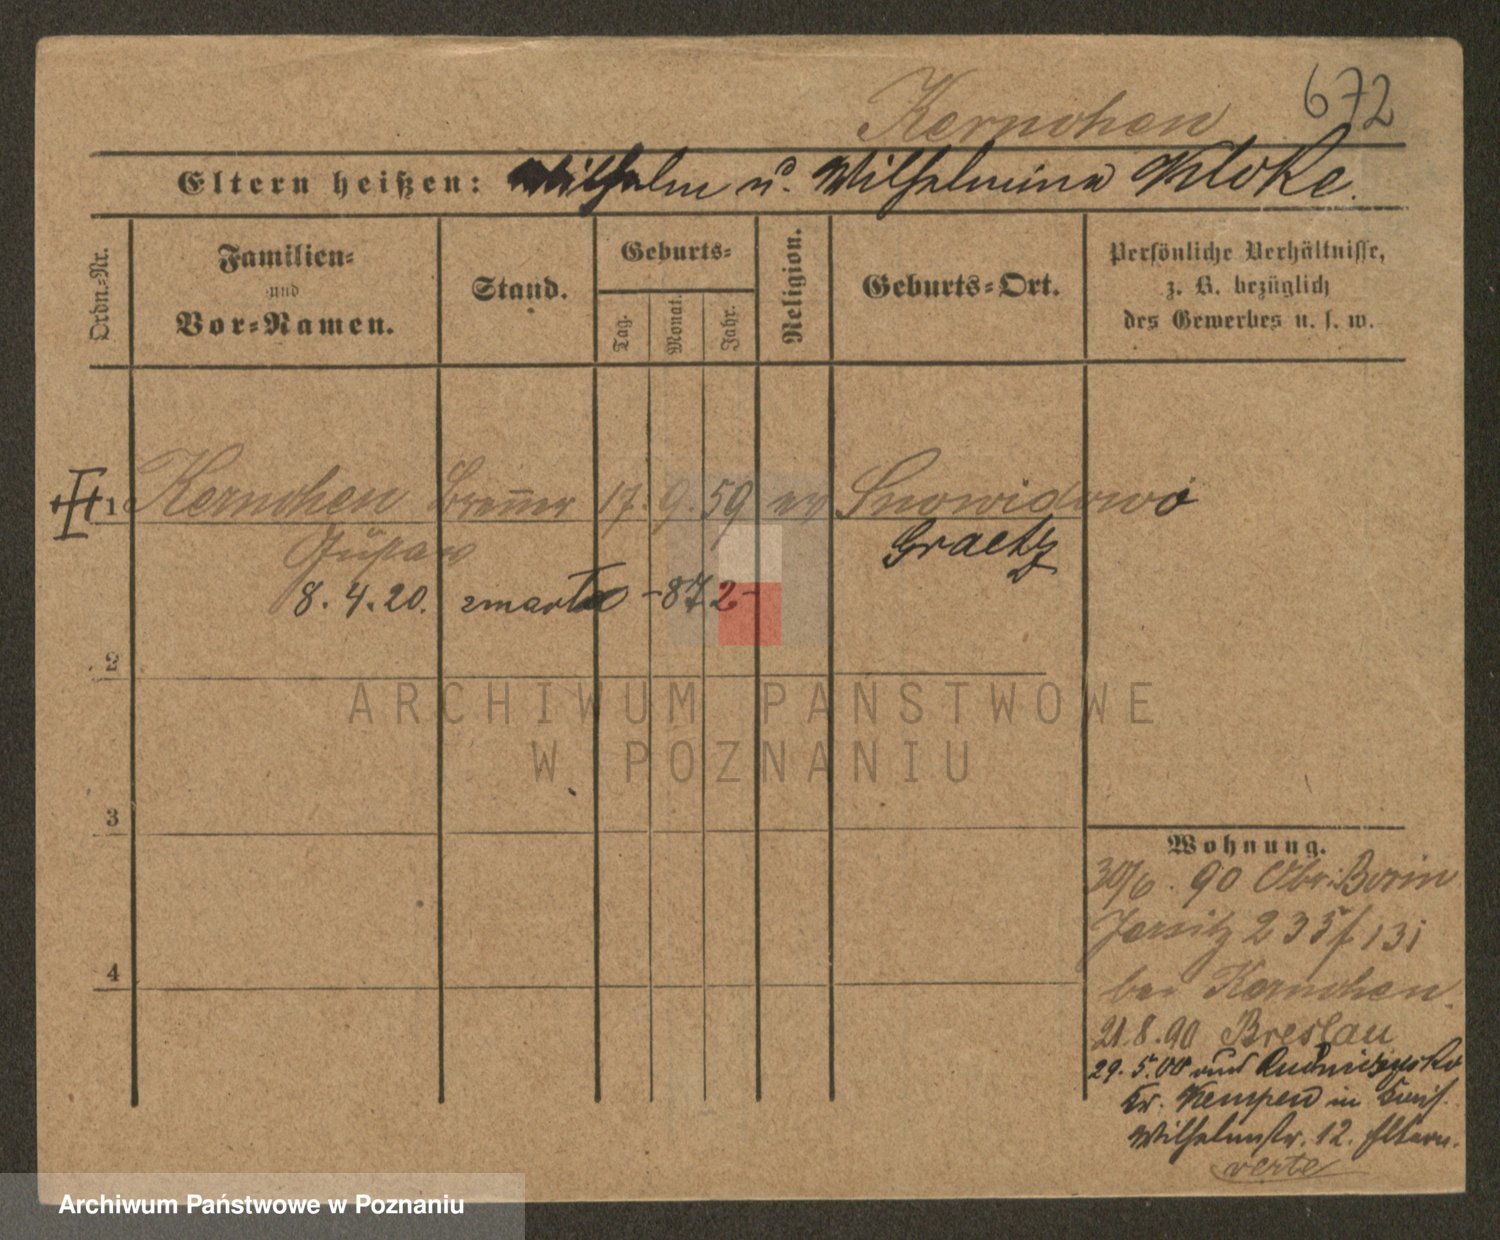 672
Kernchen
Eltern heißen: Wilhelm u. Wilhelmina Kloke.
Ordn.-Nr.
Familien-
und
Vor-Namen.
Stand.
Geburts-
Tag.
Monat.
Jahr.
Religion.
Geburts-Ort.
Persönliche Verhältnisse,
z. B. bezüglich
des Gewerbes u. s. w.
1 Kernchen 17. 9. 59 ev Snowidowo
Graetz
8. 4. 20. zmarła -872-
2
ARCHIWUM PAŃSTWOWE
W POZNANIU
3
Wohnung.
30/6. 90
Jersitz 235/131
bei Kernchen.
21.8.90 Breslau
29. 5. 00
Kr. Kempen in
Wilhelmstr. 12. Eltern.
verte
4
Archiwum Państwowe w Poznaniu